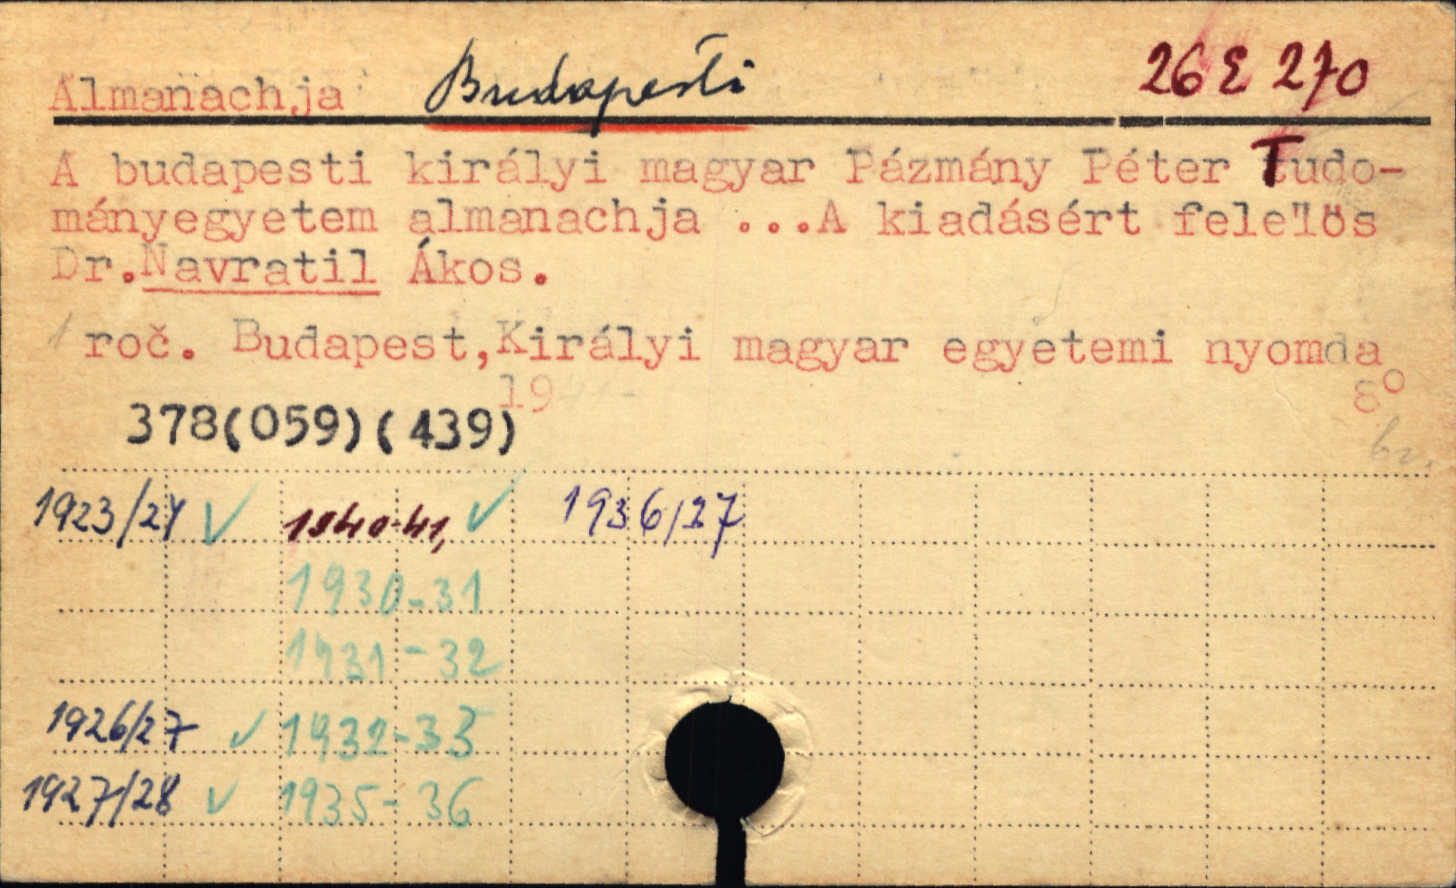 Almanachja Budapesti 26 E 270
A budapesti királyi magyar Pázmány Péter Tudo-
mányegyetem almanachja ...A kiadásért fele"lös
Dr.Navratil Ákos.
roč. Budapest,Királyi magyar egyetemi nyomda
19 8°
378(059)(439)
1923/24 ✓ 1940-41, ✓ 1936/37
1930-31
1931-32
1926/27 ✓ 1932-33
1927/28 ✓ 1935-36